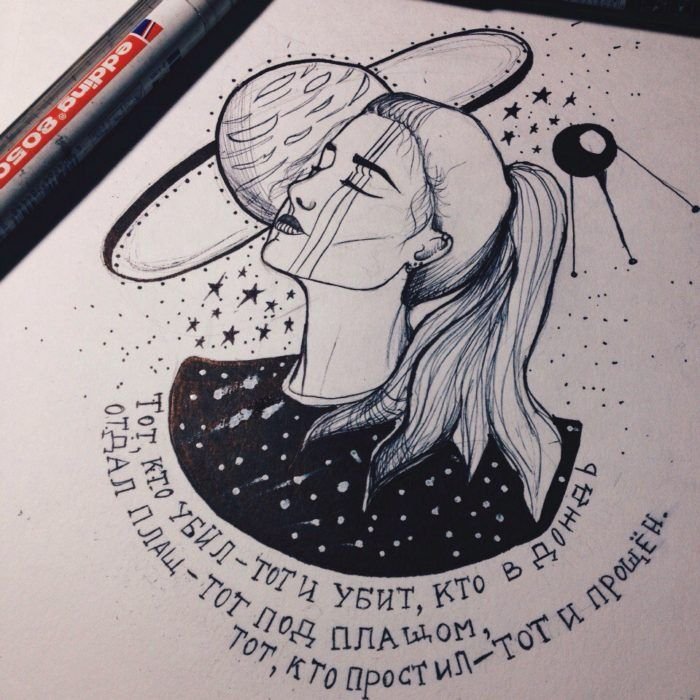 edding® 8050
Тот, кто убил – тот и убит, кто в дождь
отдал плащ – тот под плащом,
тот, кто простил – тот и прощён.